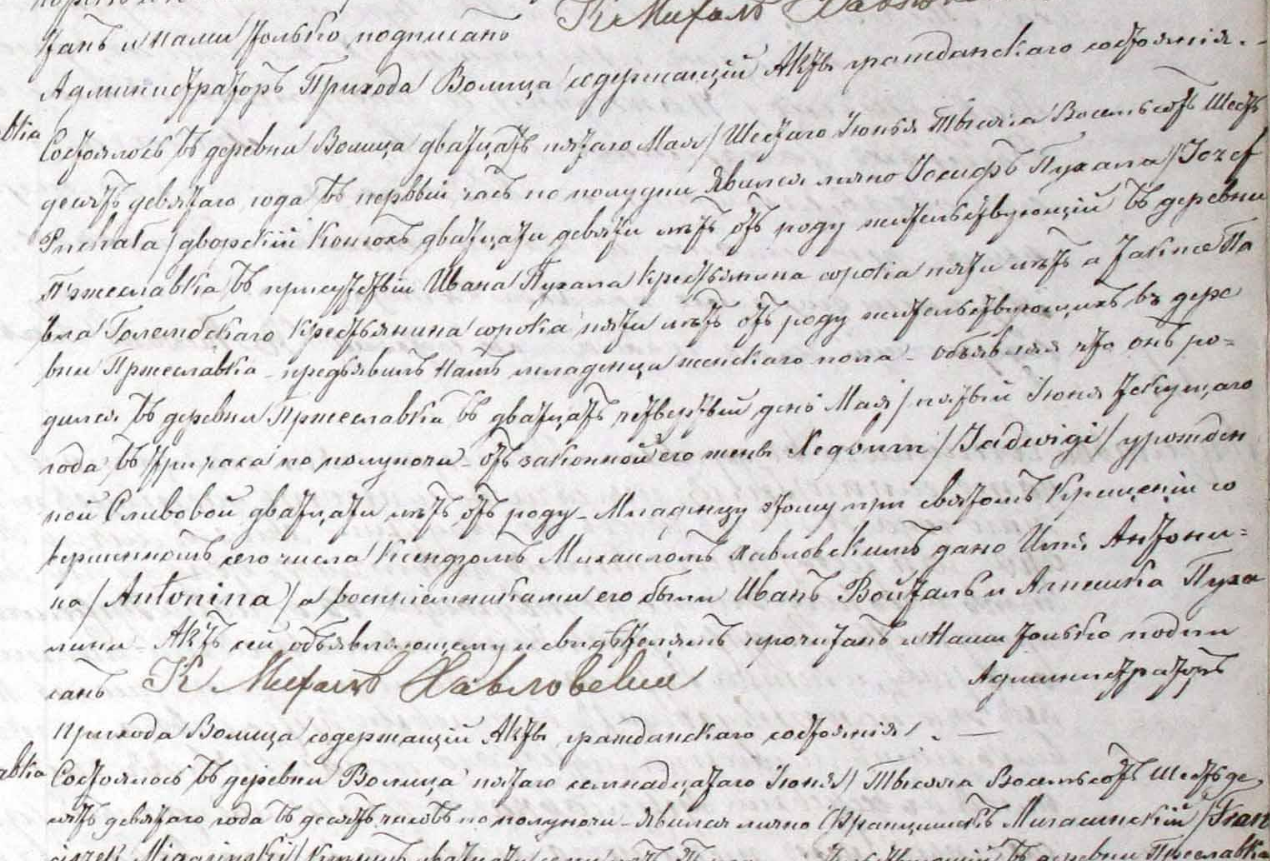 К Михалъ Хавловскій
танъ и Нами только подписанъ
Администраторъ Прихода Волица содержащій Акты гражданскаго состоянія. -
Состоялось въ деревни Волица двадцать пятаго Мая / Шестаго Іюнья Тысяча Восемьсотъ Шесть
десятъ девятаго года въ первый часъ по полудни явился лично Іосифъ Пухала / Jozef
Puchala / дворскій Конюхъ двадцати девяти лѣтъ отъ роду жительствующій въ деревни
Пржеславка въ присутствіи Ивана Пухала крестьянина сорока пяти лѣтъ а также Па
вла Голембскаго Крестьянина сорока пяти лѣтъ отъ роду жительствующихъ въ дере
вни Пржеславка - предъявилъ Намъ младенца женскаго пола - объявляя что онъ ро=
дился въ деревни Пржеславка въ двадцать четвертый день Мая / пятый Іюня текущаго
года въ три часа по полуночи - отъ законной его жены Ядвиги / Jadwigi / урожден
ной Сливовой двадцати лѣтъ отъ роду - Младенцу этому при святомъ Крещеніи со
вершенномъ сего числа Ксендзомъ Михаиломъ Хавловскимъ дано Имя Антони=
на / Antonina / а воспріемниками его были Иванъ Войталь и Агнешка Пуха
лина - Актъ сей объявляющему и свидѣтелямъ прочитанъ и Нами только подпи
санъ К Михалъ Хавловскій Администраторъ
прихода Волица содержащій Акты гражданскаго состоянія. -
Состоялось въ деревни Волица пятаго семнадцатаго Іюня / Тысяча Восемьсотъ Шестьде
сятъ девятаго года въ десять часовъ по полуночи - явился лично Францишекъ Мигасинскій / Fran
ciszek Migasinski / въ деревни